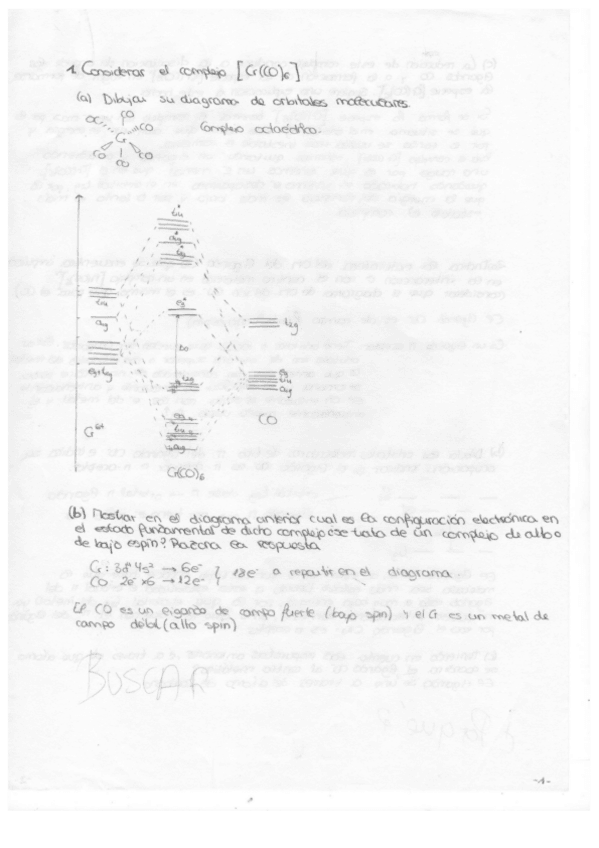 1. Considerar el complejo [Cr(CO)6]
(a) Dibujar su diagrama de orbitales moleculares.
CO
OC CO
Cr
CO CO
CO
Complejo octaédrico.
t1u*
a1g*
eg*
t1u
a1g
Δo
t2g
eg+t2g
eg
t1u
a1g
CO
t2g
eg
t1u
a1g
Cr
Cr(CO)6
(b) Mostrar en el diagrama anterior cual es la configuración electrónica en
el estado fundamental de dicho complejo ¿se trata de un complejo de alto o
de bajo espín? Razona la respuesta
Cr: 3d⁴4s² → 6e⁻
CO 2e⁻x6 → 12e⁻
18e⁻ a repartir en el diagrama
El CO es un ligando de campo fuerte (bajo spin) y el Cr es un metal de
campo débil (alto spin)
BUSCAR
-1-